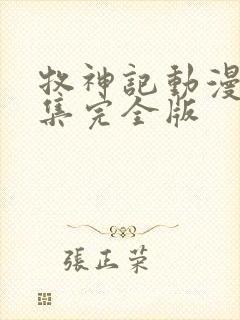 牧神記動漫
集完全版
張正榮